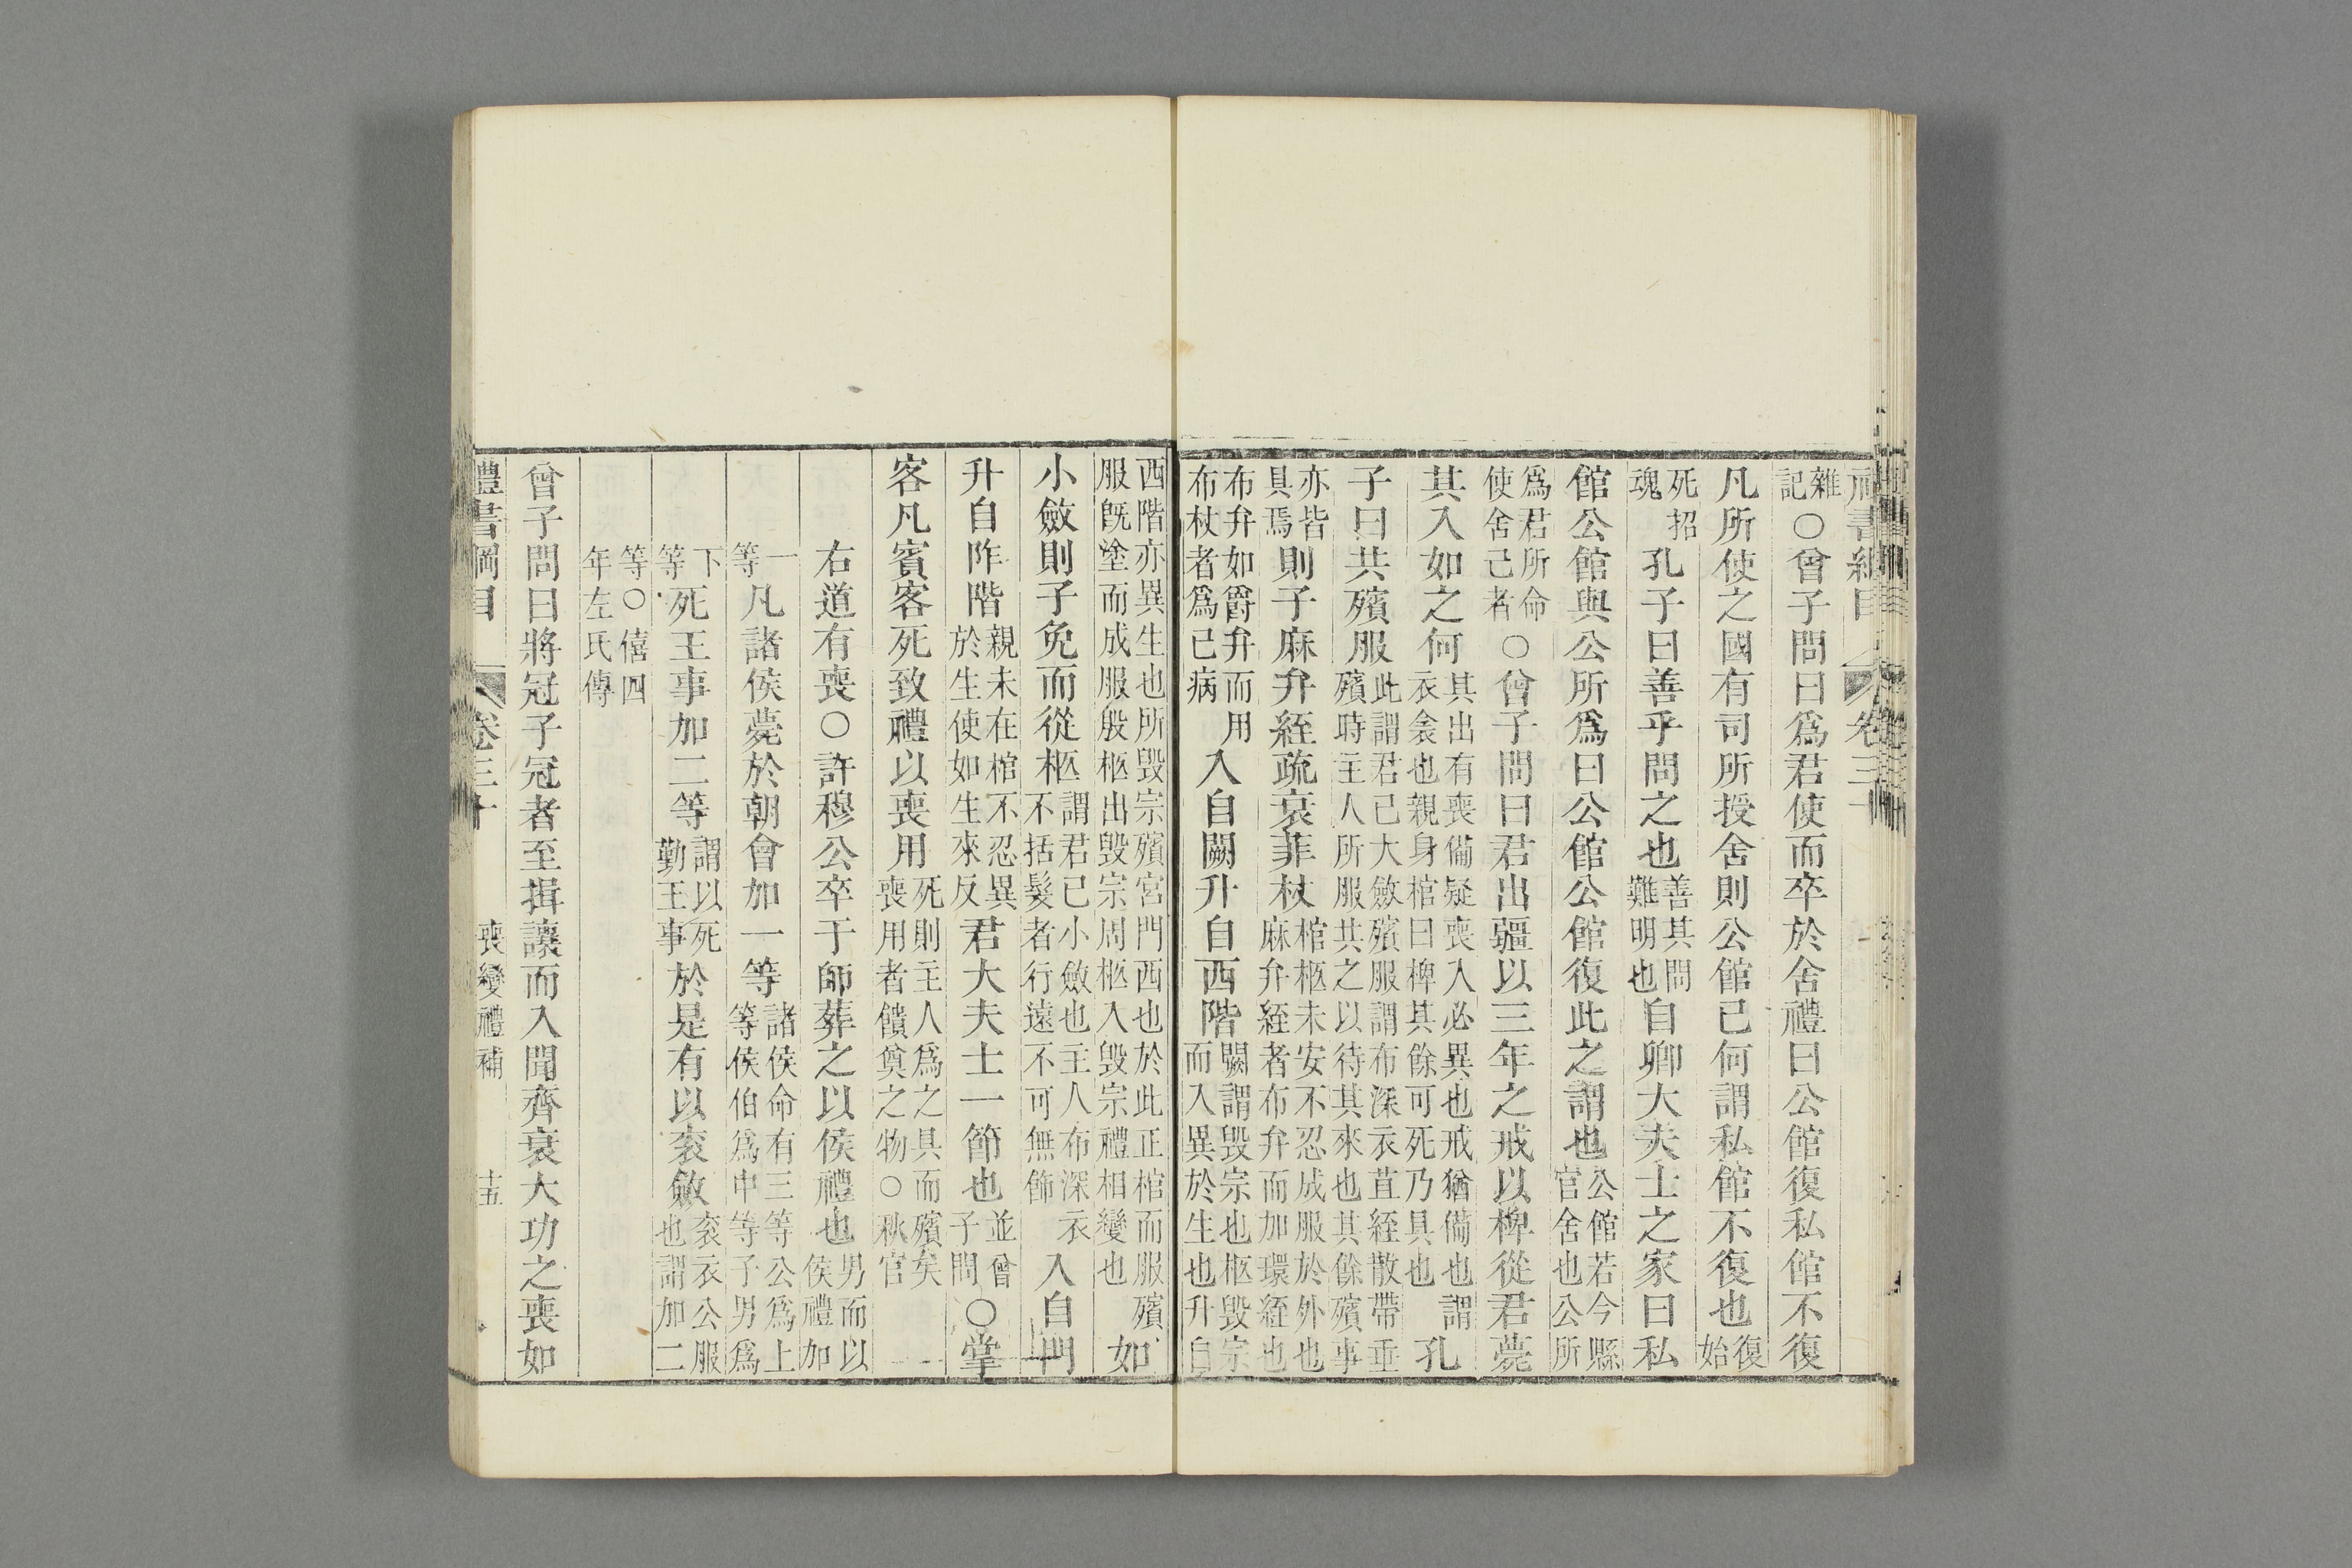 雜記○曾子問曰爲君使而卒於舍禮曰公館復私館不復
凡所使之國有司所授舍則公館已何謂私館不復也復始
死招魂孔子曰善乎問之也善其問難明也自卿大夫士之家曰私
館公館與公所爲曰公館公館復此之謂也公館若今縣官舍也公所
爲君所命使舍己者○曾子問曰君出疆以三年之戒以椑從君薨
其入如之何其出有喪備疑喪入必異也戒猶備也謂衣衾也親身棺曰椑其餘可死乃具也孔
子曰共殯服此謂君已大斂殯服謂布深衣苴絰散帶垂殯時主人所服共之以待其來也其餘殯事
亦皆具焉則子麻弁絰疏衰菲杖棺柩未安不忍成服於外也麻弁絰者布弁而加環絰也
布弁如爵弁而用布杖者爲已病入自闕升自西階闕謂毀宗也柩毀宗而入異於生也升自
西階亦異生也所毀宗殯宮門西也於此正棺而服殯服旣塗而成服殷柩出毀宗周柩入毀宗禮相變也如
小斂則子免而從柩謂君已小斂也主人布深衣不括髮者行遠不可無飾入自門
升自阼階親未在棺不忍異於生使如生來反君大夫士一節也並曾子問○掌
客凡賓客死致禮以喪用死則主人爲之具而殯矣喪用者饋奠之物○秋官
右道有喪○許穆公卒于師葬之以侯禮也男而以侯禮加
一等凡諸侯薨於朝會加一等諸侯命有三等公爲上等侯伯爲中等子男爲
下等死王事加二等謂以死勤王事於是有以衮斂衮衣公服也謂加二
等○僖四年左氏傳
曾子問曰將冠子冠者至揖讓而入聞齊衰大功之喪如
禮書綱目 卷三十 喪變禮補 十五